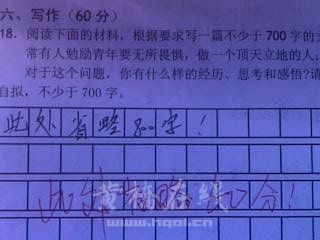 六、写作（60分）
18. 阅读下面的材料，根据要求写一篇不少于700字的文
常有人勉励青年要无所畏惧，做一个顶天立地的人；
对于这个问题，你有什么样的经历、思考和感悟？请
自拟，不少于700字。
此处省略800字！
此处省略60分！
www.hqol.cn